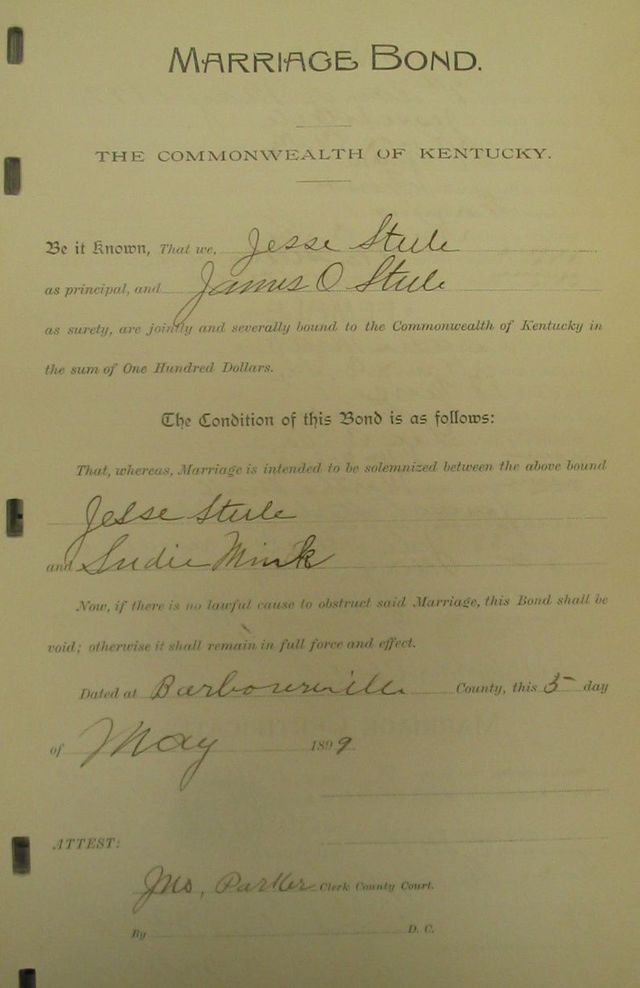 MARRIAGE BOND.
THE COMMONWEALTH OF KENTUCKY.
Be it Known, That we, Jesse Steele
as principal, and James O Steele
as surety, are jointly and severally bound to the Commonwealth of Kentucky in
the sum of One Hundred Dollars.
The Condition of this Bond is as follows:
That, whereas, Marriage is intended to be solemnized between the above bound
Jesse Steele
and Sudie Mink
Now, if there is no lawful cause to obstruct said Marriage, this Bond shall be
void; otherwise it shall remain in full force and effect.
Dated at Barbourville County, this 5 day
of May 1899
ATTEST:
Jno, Parker Clerk County Court.
By D. C.